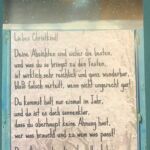 Liebes Christkind!
Deine Absichten sind sicher die besten,
und was du so bringst zu den Festen,
ist wirklich sehr reichlich und ganz wunderbar,
bloß falsch verteilt, wenn nicht ungerecht gar!
Du kommst halt nur einmal im Jahr,
und da ist es doch sonnenklar,
dass du überhaupt keine Ahnung hast,
wer was braucht und zu wem was passt!